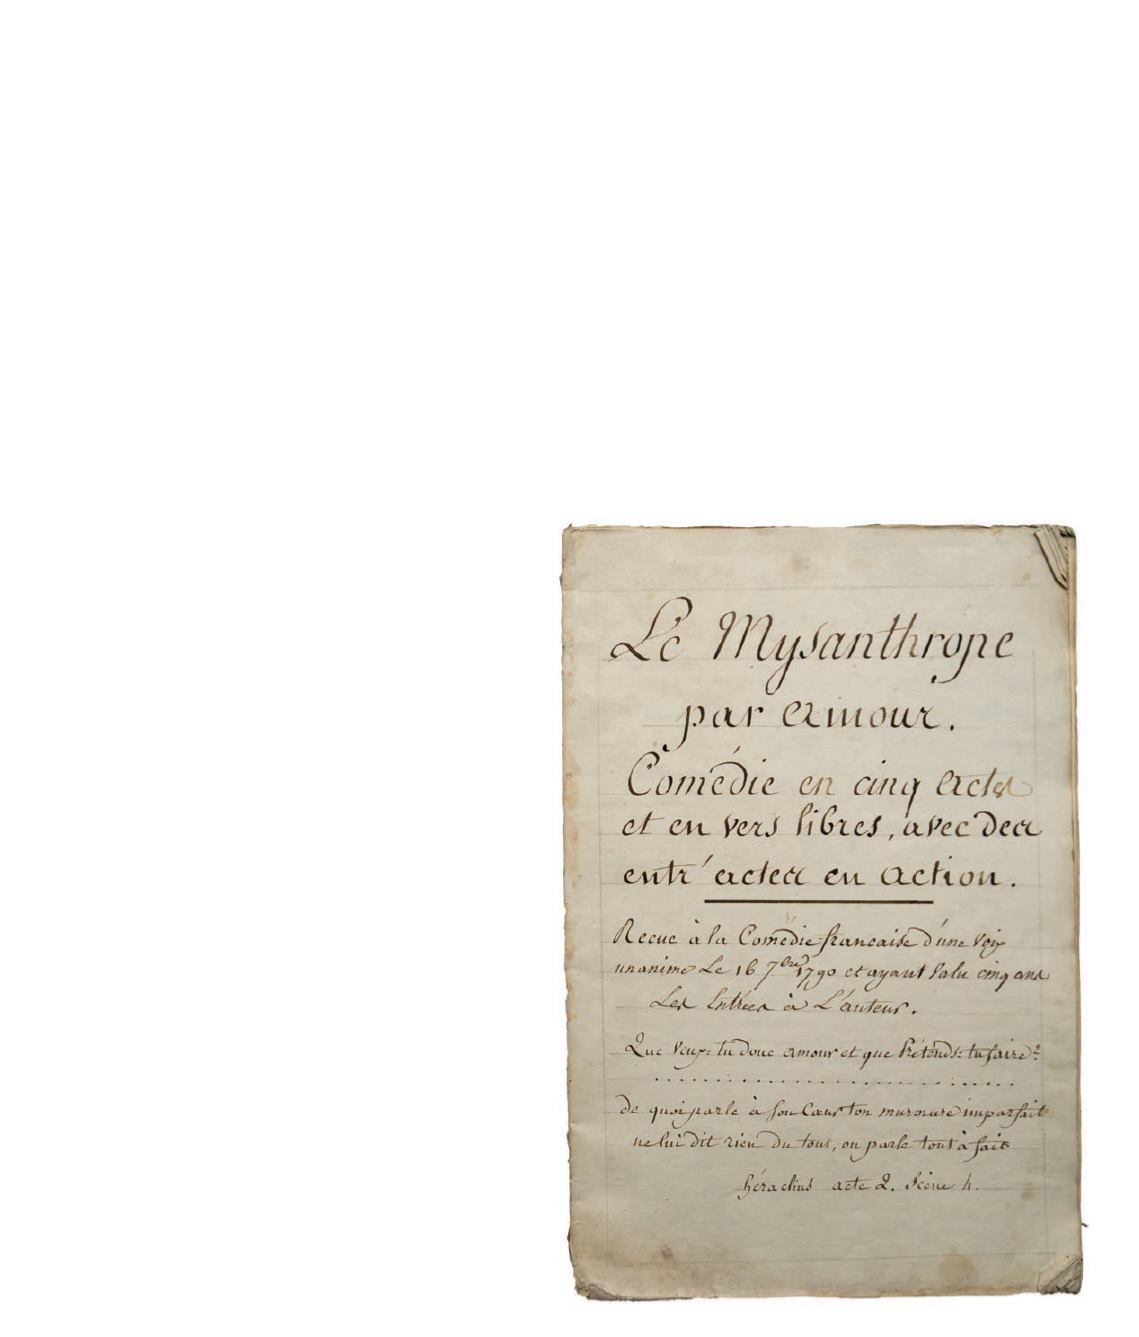 Le Mysanthrope
par amour.
Comédie en cinq actes
et en vers libres, avec des
entr'actes en action.
Recue à la Comédie francaise d'une voix
unanime Le 16 7.bre 1790 et ayant valu cinq ans
Les Entrées à L'auteur.
Que veux-tu donc amour et que prétends-tu faire?
de quoi parle à son Cœur ton murmure imparfait
ne lui dit rien du tout, ou parle tout à fait
héraclius acte 2. Scène 4.